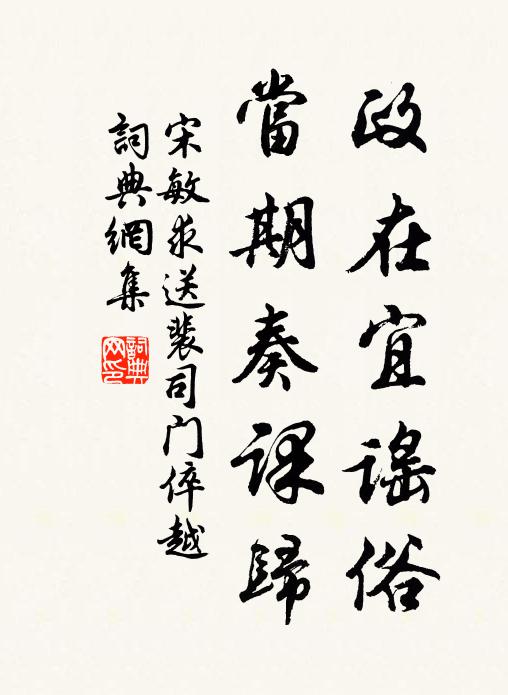 政在宜謠俗
當期奏課歸
宋敏求送裴司門倅越
詞典網集
詞典網印